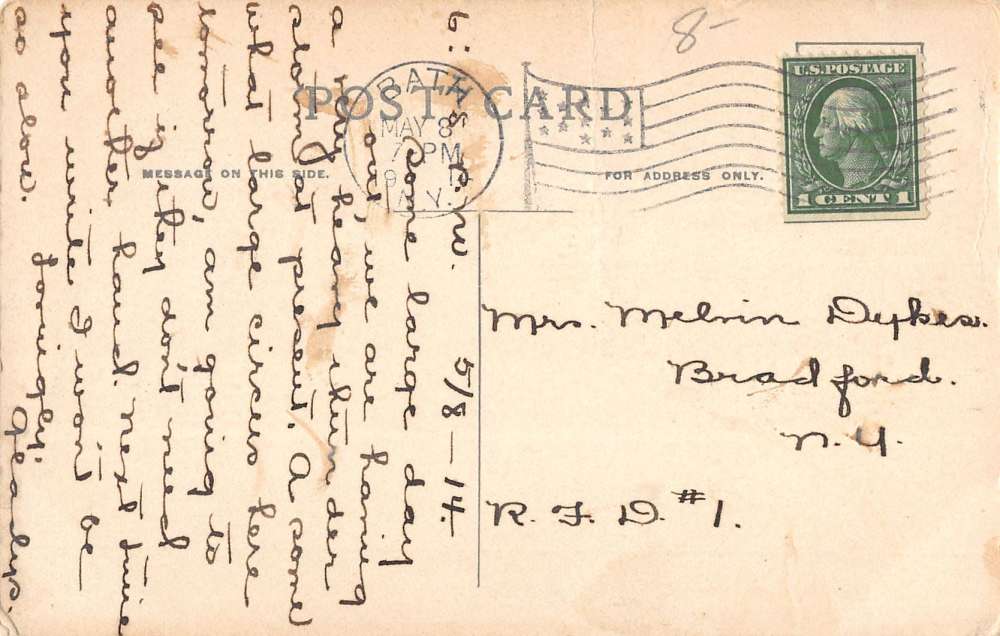 8-
POST CARD
MESSAGE ON THIS SIDE.
FOR ADDRESS ONLY.
BATH
MAY 8
7 PM
N.Y.
U.S. POSTAGE
1 CENT 1
6:15 P.M. 5/8-14.
Some large day
out, we are having
a very heavy thunder
storm at present. A some
what large circus here
tomorrow, am going to
see if they don't need
another hand. Next time
you write I won't be
so slow.
Lovingly,
Gladys.
Mrs. Melvin Dykes.
Bradford.
N.Y.
R. F. D. #1.